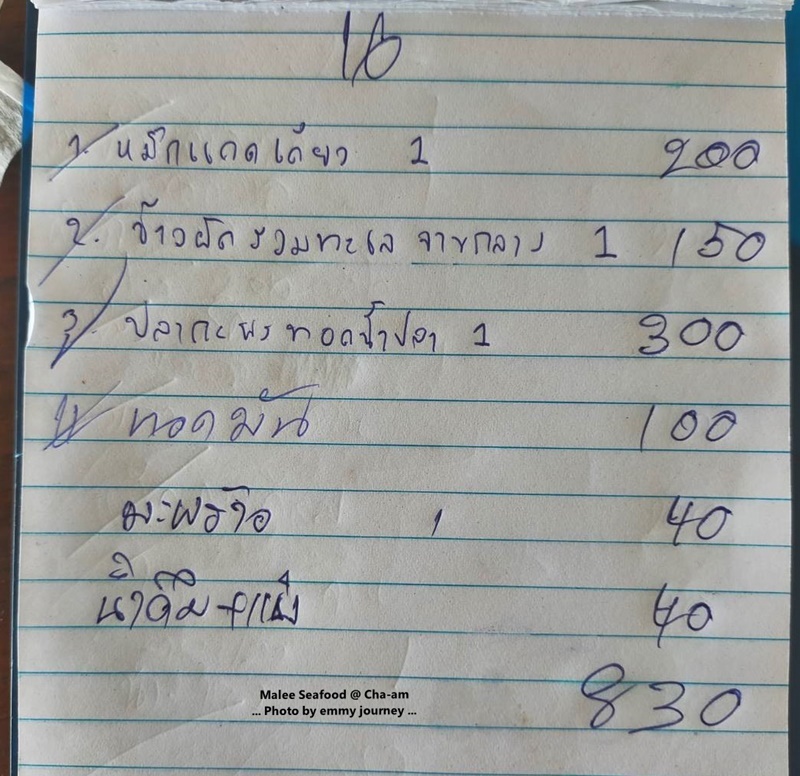 16
1. หมึกแดดเดียว 1 200
2. ข้าวผัดรวมทะเล จานกลาง 1 150
3. ปลากะพงทอดน้ำปลา 1 300
4. ทอดมัน 100
มะพร้าว 1 40
น้ำดื่ม + แข็ง 40
830
Malee Seafood @ Cha-am
... Photo by emmy journey ...